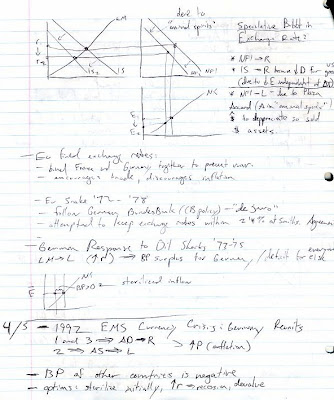 due to
"animal spirits"
LM
r₁
r₂
IS₂
IS
NFI
NFI
NX
E₁
E₂
Speculative Bubble in
Exchange Rate?
* NFI → R
* IS → R
* NFI → L - due to Plaza
Accord (Aim "animal spirits")
$ to depreciate so sold
$ assets.
- Eu fixed exchange rates:
- bind France and Germany together to prevent war.
- encourages trade, discourages inflation
- Eu Snake '72 - '78
- follow Germany BundesBank (CB policy) - "de jure"
- attempted to keep exchange rates within 2¼% at Smiths. Agreement
- German Response to Oil Shocks '73-75
LM → L (↑r) → BP surplus for Germany, /deficit for everyone else
E
NX
BP>0?
sterilized inflow
4/5 - 1992 EMS Currency Crisis: Germany Reunits
1 and 3 → AD → R
2 → AS → L
> ↑P (inflation)
- BP of other countries is negative
- options: sterilize initially, ↑r → recession, devalue